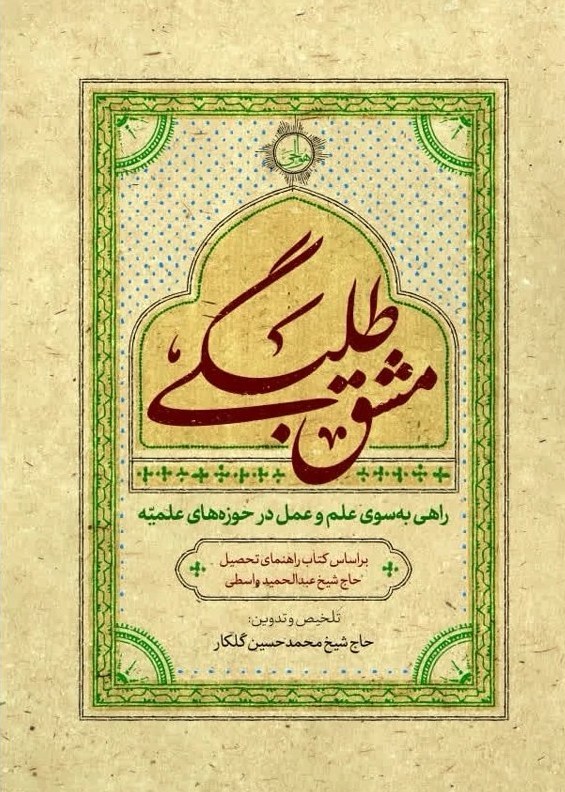 هو الحی
مشق طلبگی
راهی به‌سوی علم و عمل در حوزه‌های علمیّه
براساس کتاب راهنمای تحصیل
حاج شیخ عبدالحمید واسطی
تلخیص و تدوین:
حاج شیخ محمدحسین گلکار